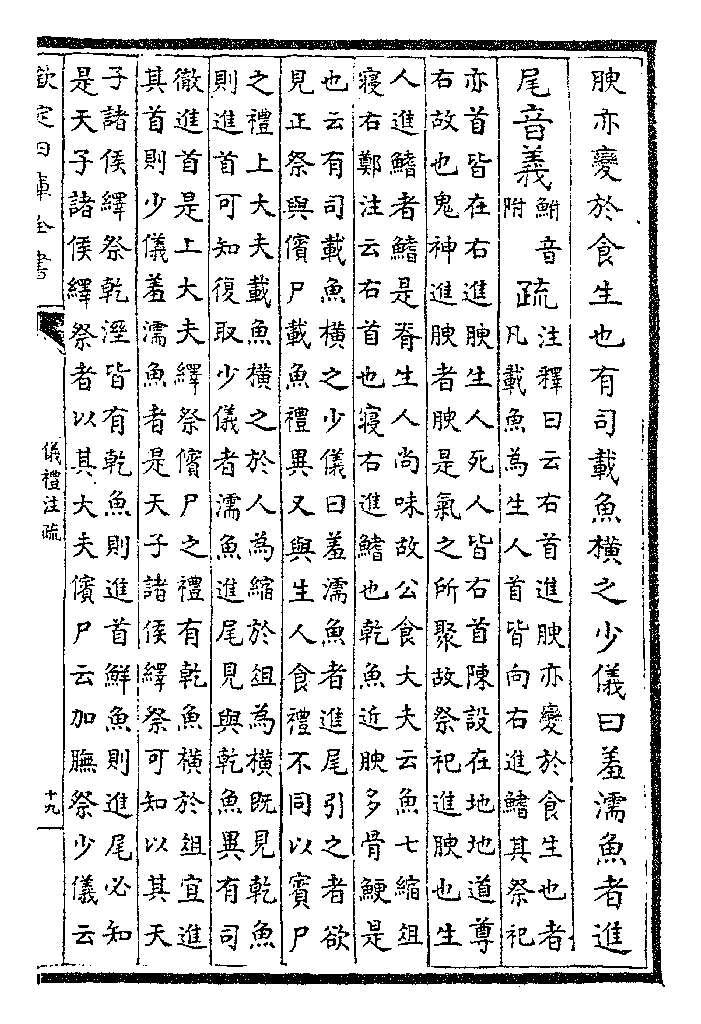 腴亦變於食生也有司載魚橫之少儀曰羞濡魚者進
尾音義鮒音附疏注釋曰云右首進腴亦變於食生也者
凡載魚為生人首皆向右進鰭其祭祀
亦首皆在右進腴生人死人皆右首陳設在地地道尊
右故也鬼神進腴者腴是氣之所聚故祭祀進腴也生
人進鰭者鰭是脊生人尚味故公食大夫云魚七縮俎
寢右鄭注云右首也寢右進鰭也乾魚近腴多骨鯁是
也云有司載魚橫之少儀曰羞濡魚者進尾引之者欲
見正祭與儐尸載魚禮異又與生人食禮不同以賓尸
之禮上大夫載魚橫之於人為縮於俎為橫既見乾魚
則進首可知復取少儀者濡魚進尾見與乾魚異有司
徹進首是上大夫繹祭儐尸之禮有乾魚橫於俎宜進
其首則少儀羞濡魚者是天子諸侯繹祭可知以其天
子諸侯繹祭乾溼皆有乾魚則進首鮮魚則進尾必知
是天子諸侯繹祭者以其大夫儐尸云加膴祭少儀云
欽定四庫全書
儀禮注疏
十九